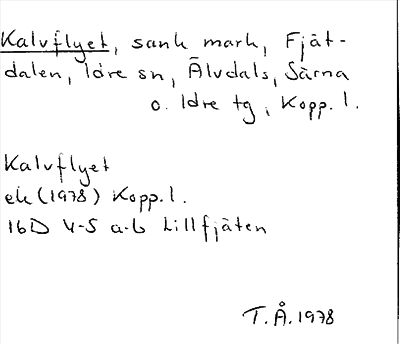 Kalvflyet, sank mark, Fjät-
dalen, Idre sn, Älvdals, Särna
o. Idre tg, Kopp. l.
Kalvflyet
ek (1978) Kopp. l.
16D 4-5 a-b Lillfjäten
T.Å. 1978